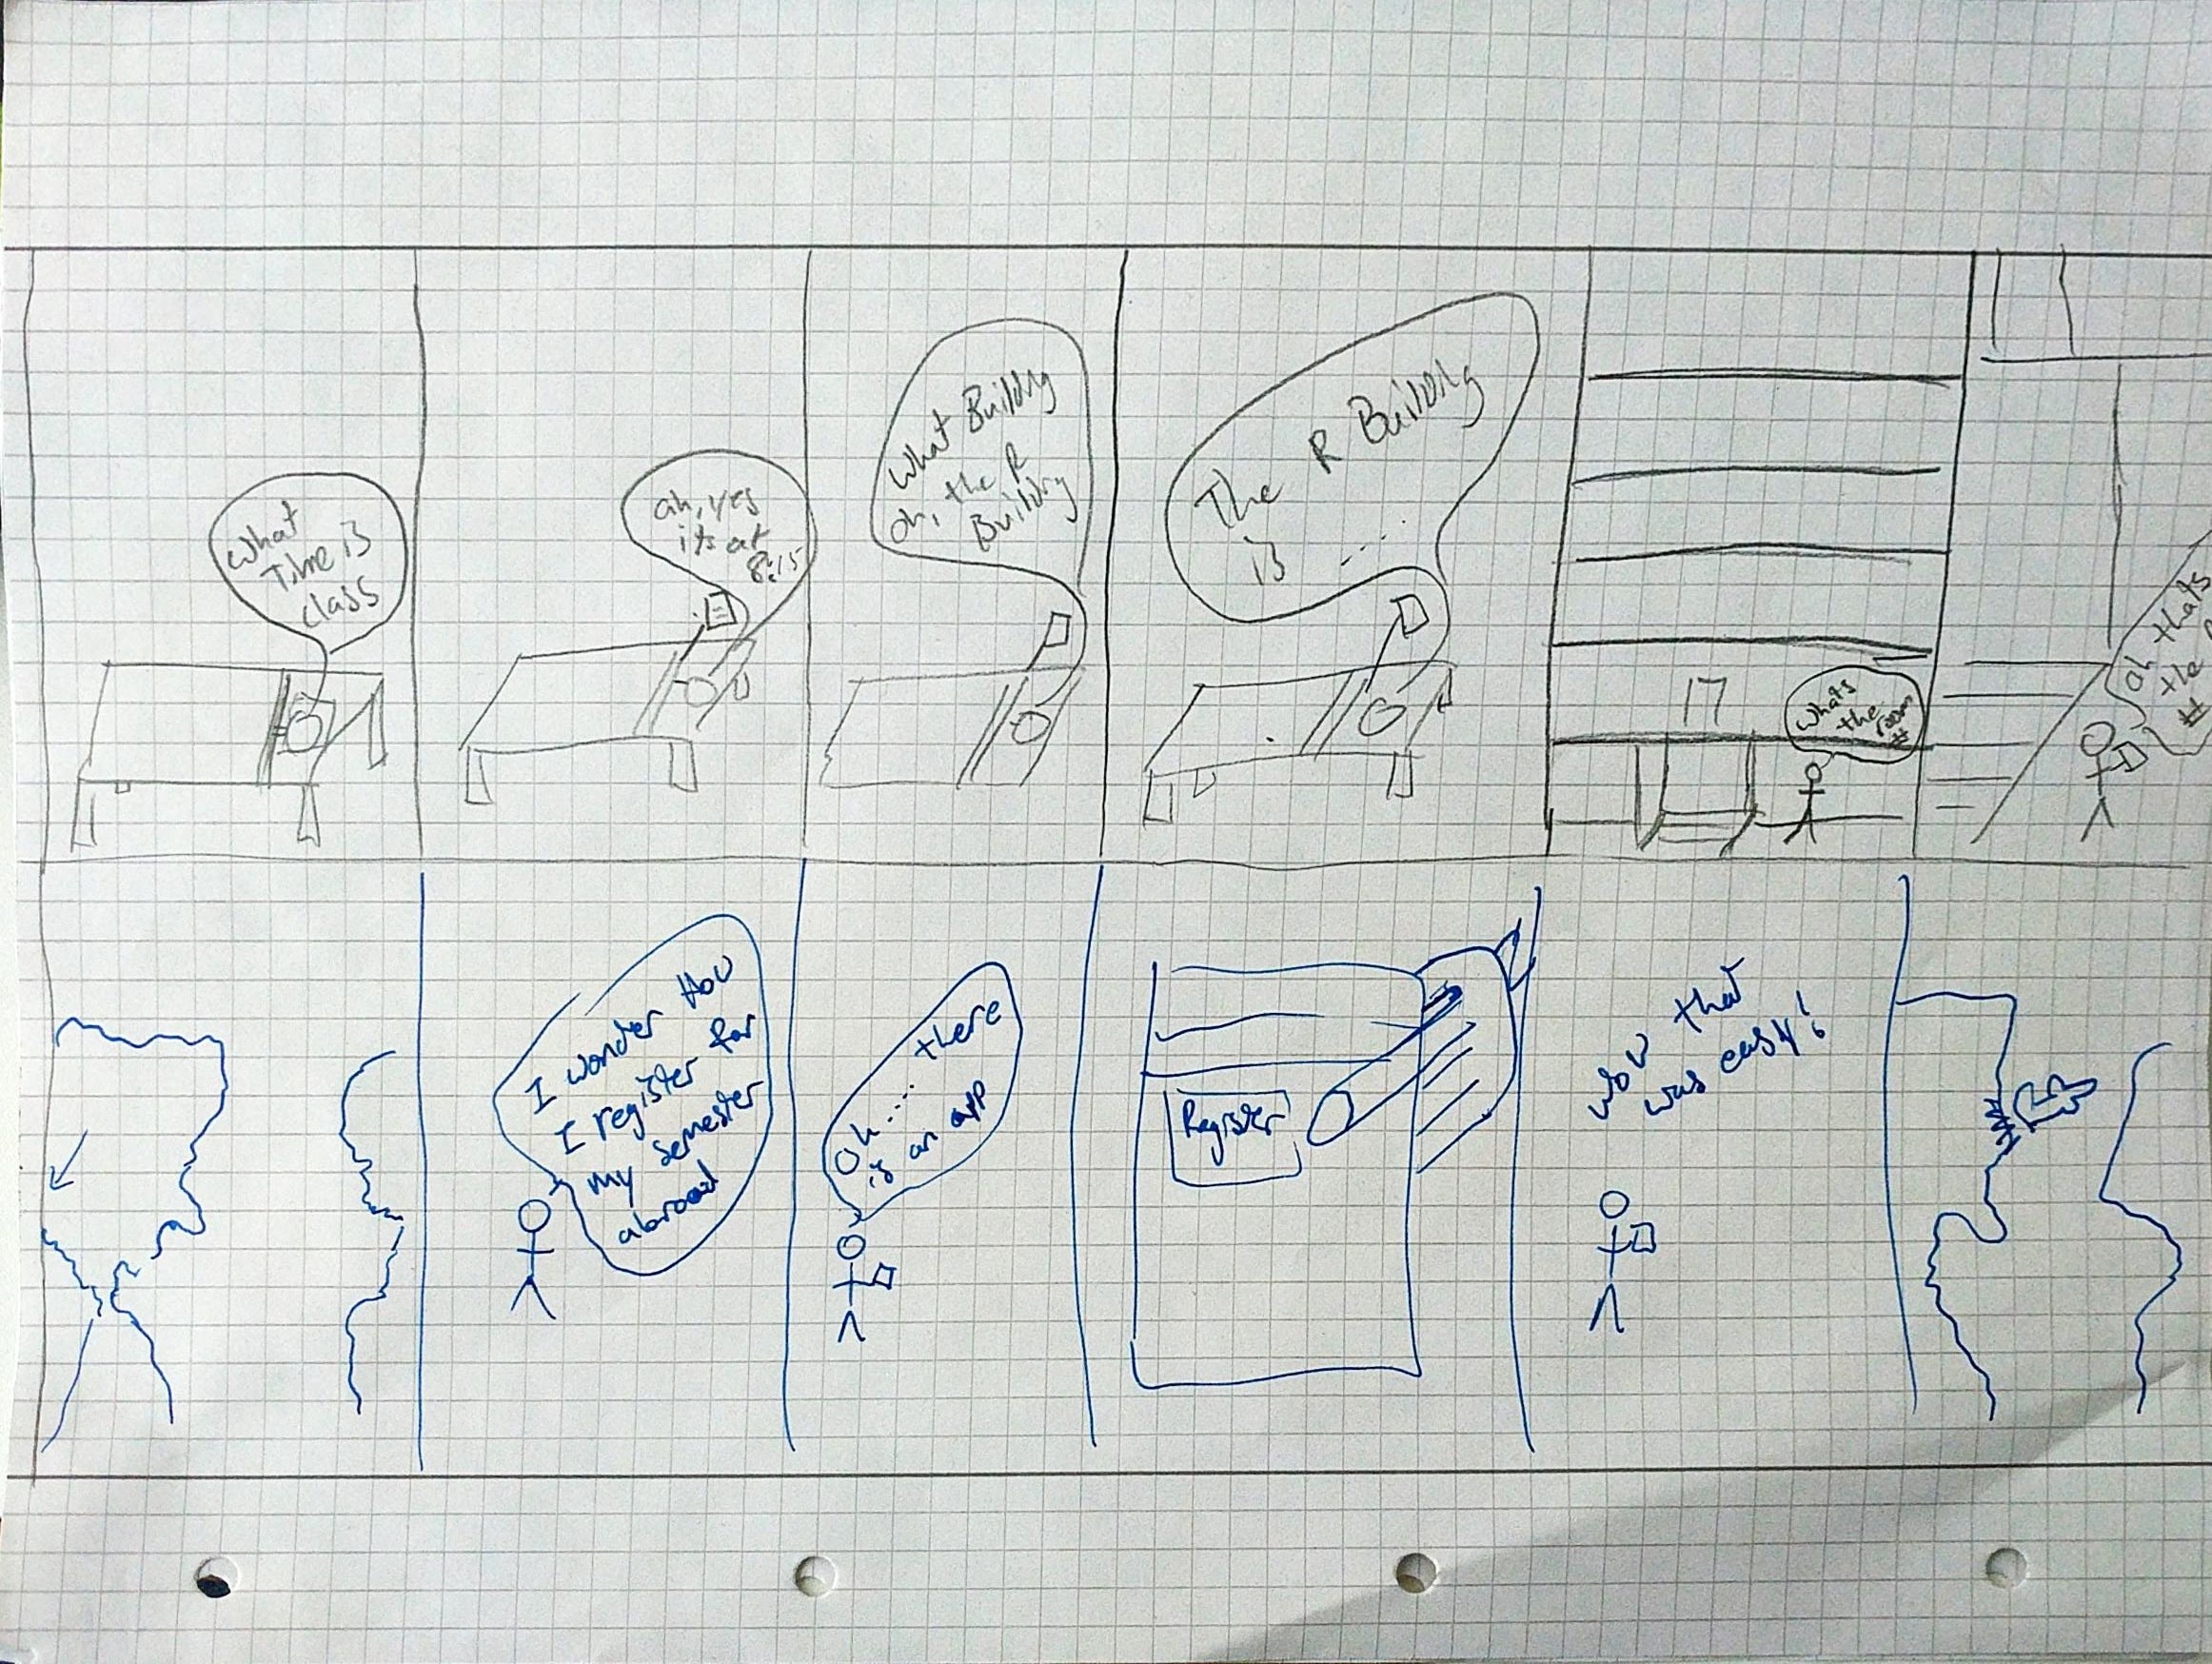 What
Time is
class
ah, yes
its at
8:15
What Building
oh, the R
Building
The R Building
is ....
17
Whats
the room
#
oh thats
the
#
I wonder How
I register for
my semester
abroad
Oh.... there
is an app
Register
wow that
was easy!